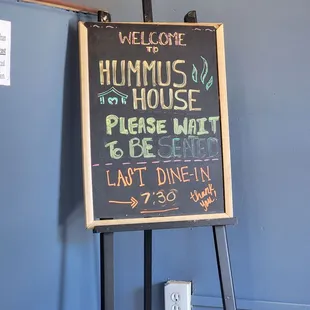 WELCOME
TO
HUMMUS
HOUSE
PLEASE WAIT
TO BE SEATED
LAST DINE-IN
7:30
thank
you!